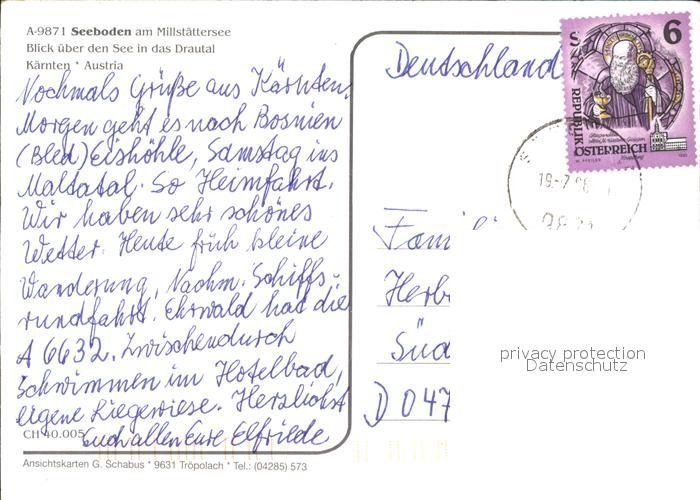 A-9871 Seeboden am Millstättersee
Blick über den See in das Drautal
Kärnten * Austria
Nochmals Grüße aus Kärnten.
Morgen geht es nach Bosnien
(Bled) Eishöhle, Samstag ins
Maltatal. So Heimfahrt.
Wir haben sehr schönes
Wetter. Heute früh kleine
Wanderung, Nachm. Schiffs-
rundfahrt. Ehrwald hat die
A 6632. Zwischendurch
Schwimmen im Hotelbad,
eigene Liegewiese. Herzlichst
Euch allen Eure Elfriede
CH 40.005
Ansichtskarten G. Schabus * 9631 Tröpolach * Tel.: (04285) 573
Deutschland
S 6
REPUBLIK
ÖSTERREICH
19.-7.
Fami
Herb
Süd
D 047
privacy protection
Datenschutz